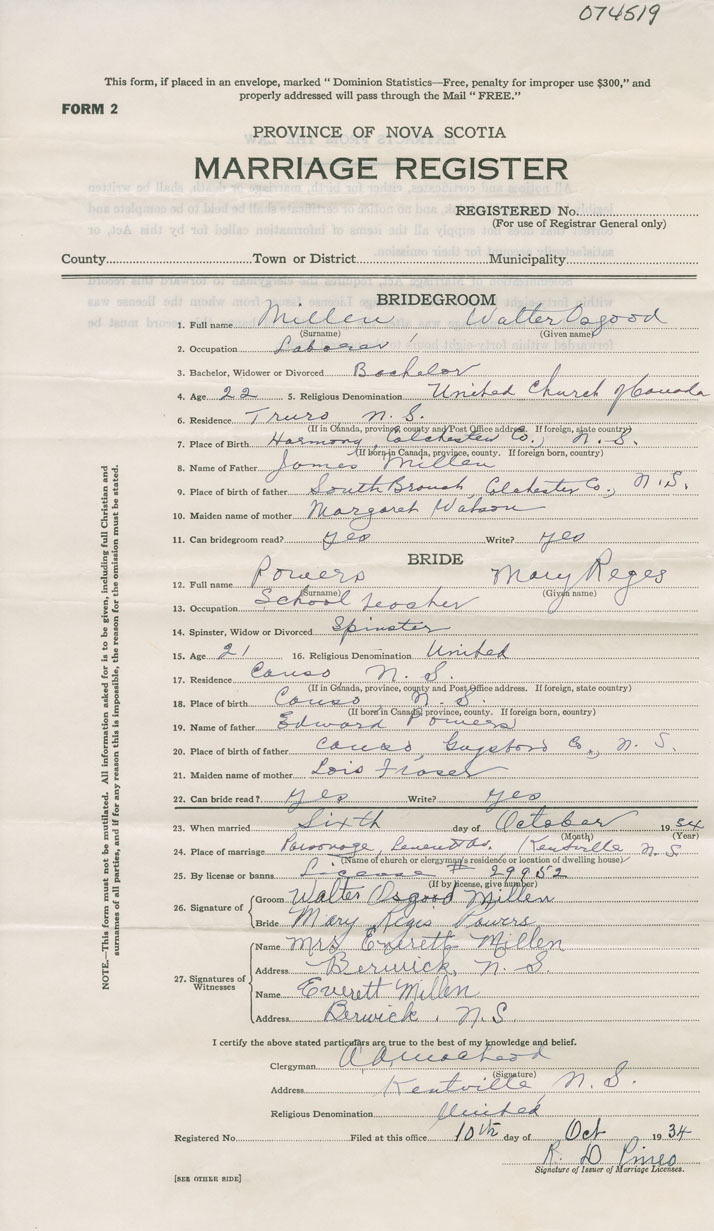 074519
This form, if placed in an envelope, marked "Dominion Statistics—Free, penalty for improper use $300," and
properly addressed will pass through the Mail "FREE."
FORM 2
PROVINCE OF NOVA SCOTIA
MARRIAGE REGISTER
REGISTERED No.
(For use of Registrar General only)
County Town or District Municipality
BRIDEGROOM
1. Full name Millen Walter Osgood
(Surname) (Given name)
2. Occupation Laborer
3. Bachelor, Widower or Divorced Bachelor
4. Age 22 5. Religious Denomination United Church of Canada
6. Residence Truro, N.S.
(If in Canada, province, county and Post Office address. If foreign, state country)
7. Place of Birth Harmony, Colchester Co., N.S.
(If born in Canada, province, county. If foreign born, country)
8. Name of Father James Millen
9. Place of birth of father South Colchester Co., N.S.
10. Maiden name of mother Margaret Watson
11. Can bridegroom read? yes Write? yes
BRIDE
12. Full name Powers Mary Reges
(Surname) (Given name)
13. Occupation School teacher
14. Spinster, Widow or Divorced Spinster
15. Age 21 16. Religious Denomination United
17. Residence Canso N.S.
(If in Canada, province, county and Post Office address. If foreign, state country)
18. Place of Birth Canso, N.S.
(If born in Canada, province, county. If foreign born, country)
19. Name of father Edward Powers
20. Place of birth of father Canso, Guysboro Co., N.S.
21. Maiden name of mother Lois Fraser
22. Can bride read? yes Write? yes
23. When married Sixth day of October 1934
(Month) (Year)
24. Place of marriage Parsonage, Kentville N.S.
(Name of church or clergyman's residence or location of dwelling house)
25. By license or banns License # 29952
(If by license, give number)
26. Signature of
Groom Walter Osgood Millen
Bride Mary Reges Powers
27. Signatures of Witnesses
Name Mrs Everett Millen
Address Berwick, N.S.
Name Everett Millen
Address Berwick, N.S
I certify the above stated particulars are true to the best of my knowledge and belief.
Clergyman
(Signature)
Address Kentville N.S.
Religious Denomination United
Registered No. Filed at this office 10th day of Oct 1934
R. D Pineo
Signature of Issuer of Marriage Licenses.
[SEE OTHER SIDE]
NOTE.—This form must not be mutilated. All information asked for is to be given, including full Christian and
surnames of all parties, and if for any reason this is impossible, the reason for the omission must be stated.